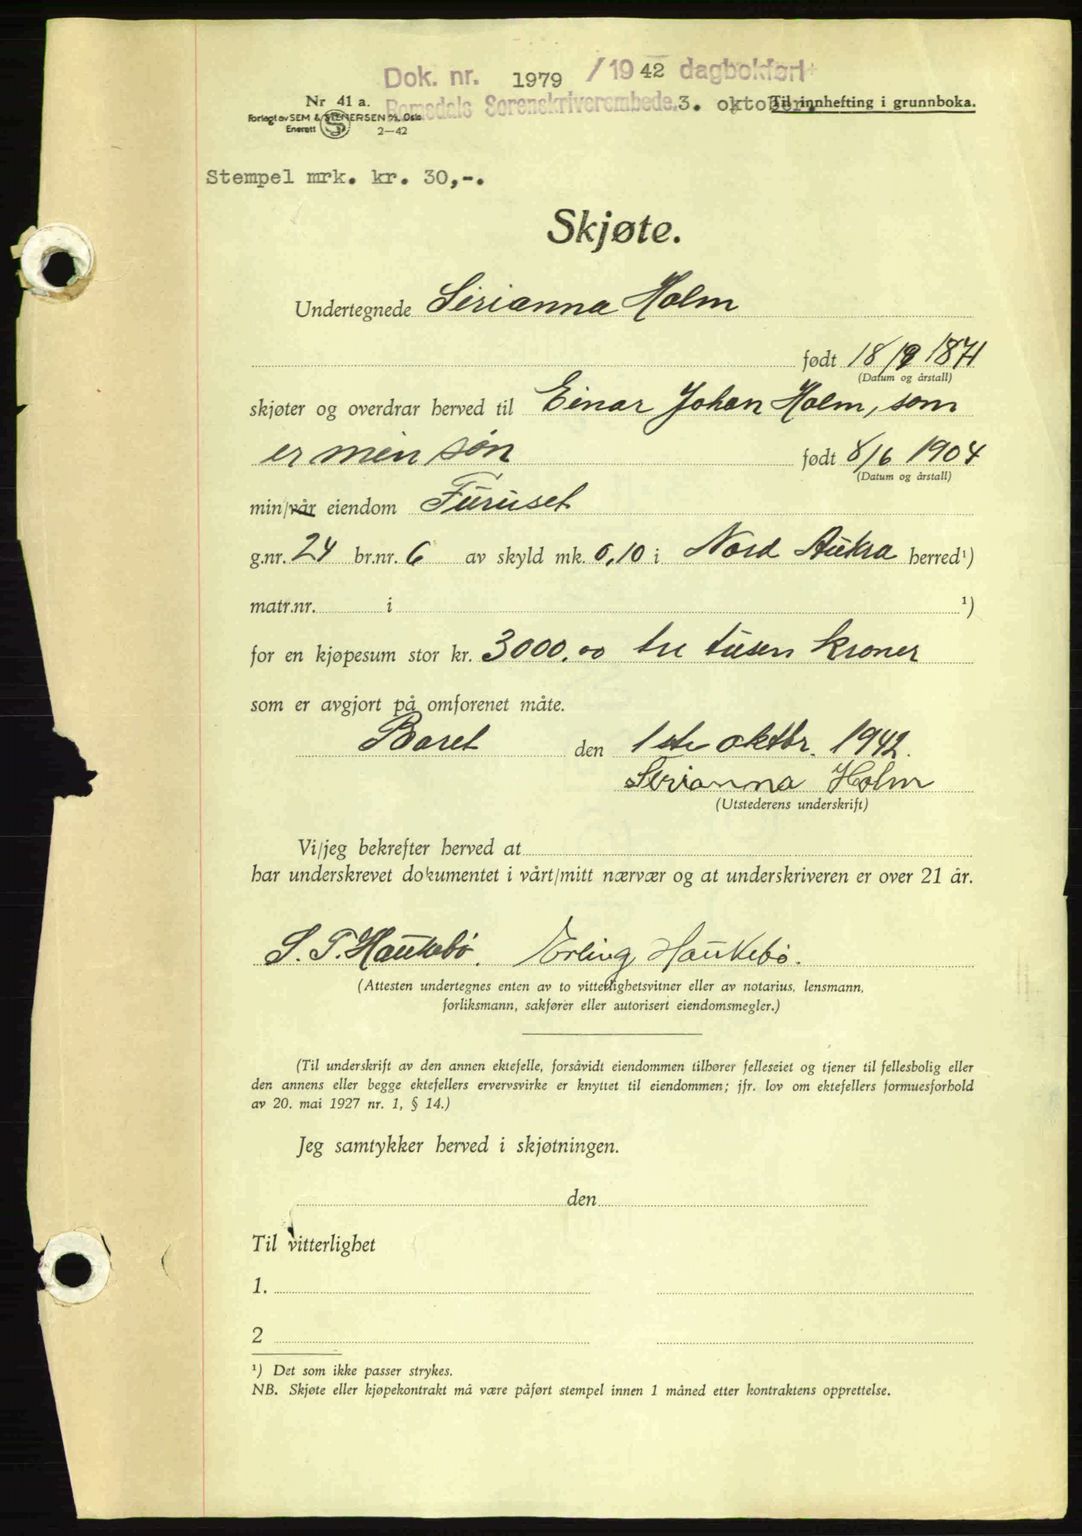 Dok. nr. 1979 / 1942 dagbokført
Romsdals Sorenskriverembede. 3. oktober.
Nr 41 a.
Til innhefting i grunnboka.
Forlagt av SEM & STENERSEN A/S, Oslo
Enerett S 2—42
Stempel mrk. kr. 30,-.
Skjøte.
Undertegnede Serianna Holm
født 18/9 1871
(Datum og årstall)
skjøter og overdrar herved til Einar Johan Holm, som
er min søn født 8/6 1904
(Datum og årstall)
min/vår eiendom Furuset
g.nr. 24 br.nr. 6 av skyld mk. 0,10 i Nord Aukra herred¹)
matr.nr. i ¹)
for en kjøpesum stor kr. 3000.00 tre tusen kroner
som er avgjort på omforenet måte.
den 1ste oktbr. 1942.
Serianna Holm
(Utstederens underskrift)
Vi/jeg bekrefter herved at
har underskrevet dokumentet i vårt/mitt nærvær og at underskriveren er over 21 år.
S. T. Haukebø. Erling Haukebø.
(Attesten undertegnes enten av to vitterlighetsvitner eller av notarius, lensmann,
forliksmann, sakfører eller autorisert eiendomsmegler.)
(Til underskrift av den annen ektefelle, forsåvidt eiendommen tilhører felleseiet og tjener til fellesbolig eller
den annens eller begge ektefellers ervervsvirke er knyttet til eiendommen; jfr. lov om ektefellers formuesforhold
av 20. mai 1927 nr. 1, § 14.)
Jeg samtykker herved i skjøtningen.
den
Til vitterlighet
1.
2
¹) Det som ikke passer strykes.
NB. Skjøte eller kjøpekontrakt må være påført stempel innen 1 måned etter kontraktens opprettelse.